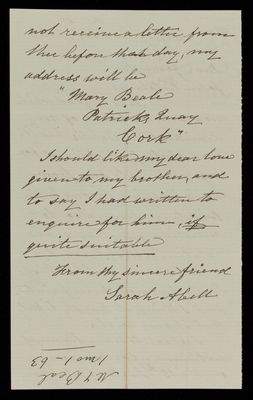 not receive a letter from
thee before that day, my
address will be
"Mary Beale
Patricks Quay
Cork"
I should like my dear love
given to my brother, and
to say I had written to
enquire for him, if
quite suitable
From thy sincere friend
Sarah Abell
M Beal
1 mo 1-63